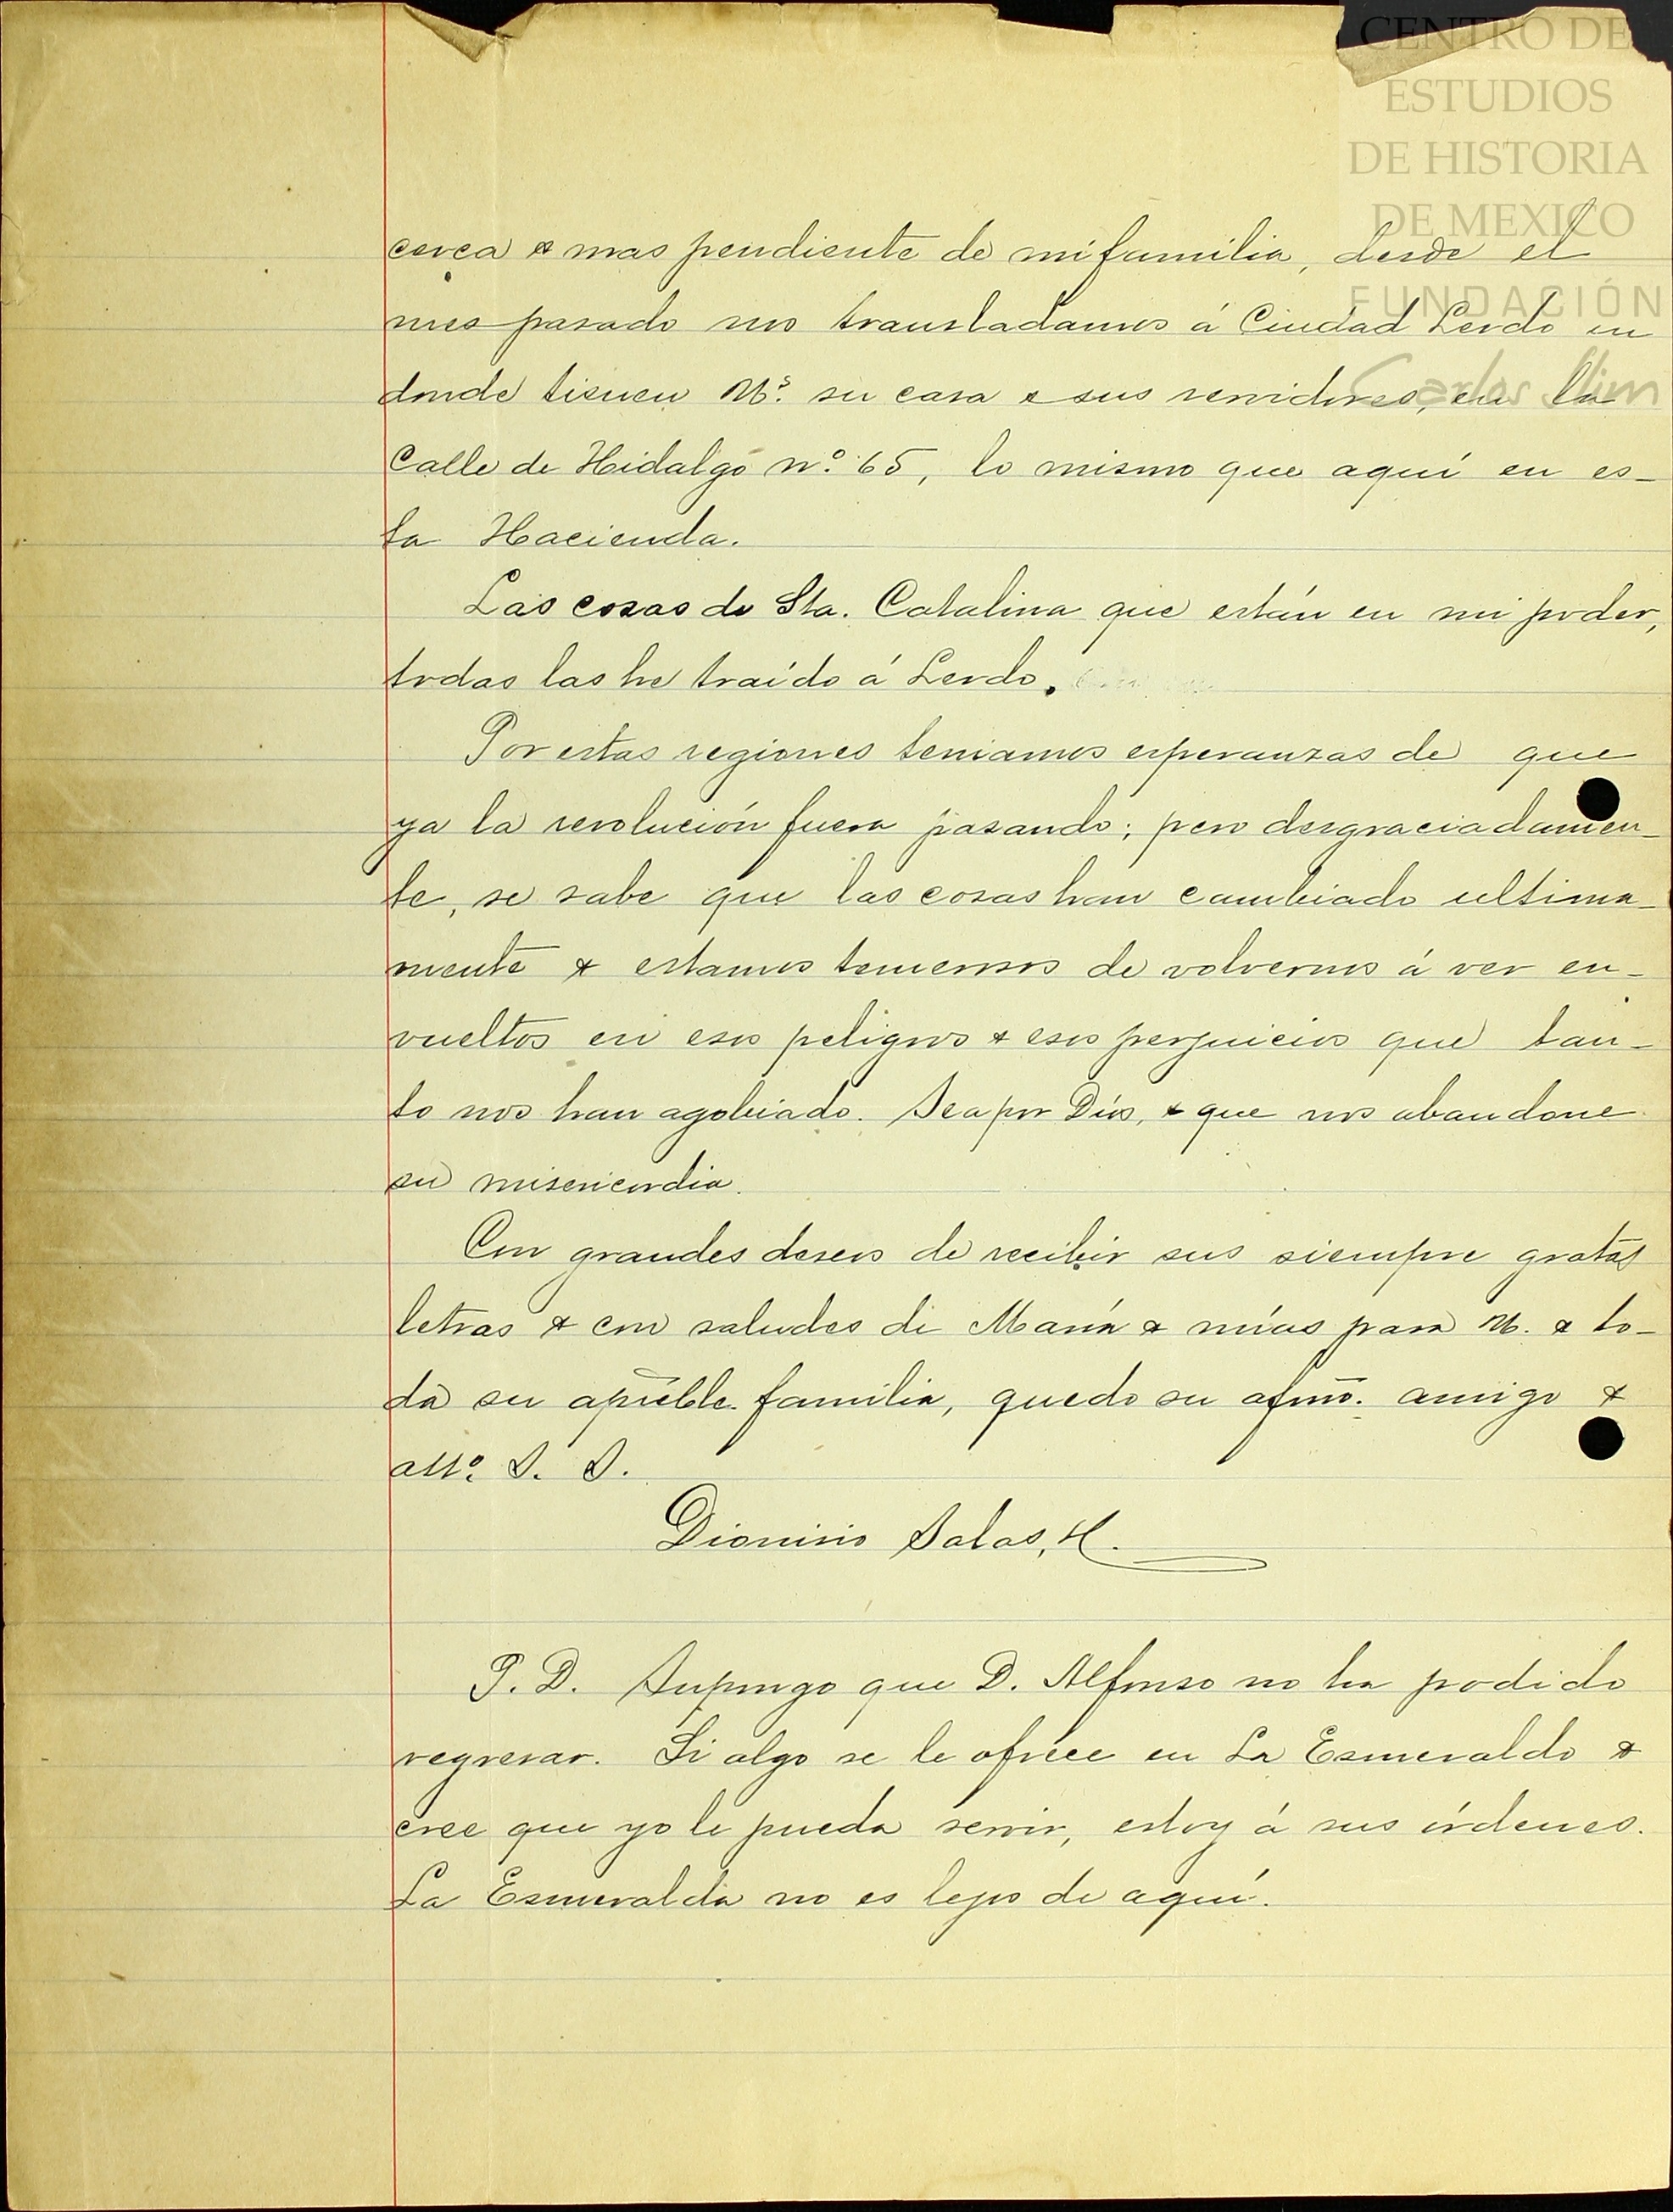 CENTRO DE
ESTUDIOS
DE HISTORIA
DE MEXICO
FUNDACIÓN
Carlos Slim
cerca & mas pendiente de mi familia, desde el
mes pasado nos transladamos á Ciudad Lerdo en
donde tienen Us. su casa & sus servidores, en la
Calle de Hidalgo nº 65, lo mismo que aquí en es-
ta Hacienda.
Las cosas de Sta. Catalina que están en mi poder,
todas las he traído á Lerdo.
Por estas regiones teniamos esperanzas de que
ya la revolución fuera pasando; pero desgraciadamen-
te, se sabe que las cosas han cambiado ultima-
mente & estamos temerosos de volvernos á ver en-
vueltos en esos peligros & esos perjuicios que tan-
to nos han agobiado. Sea por Dios, & que nos abandone
su misericordia.
Con grandes deseos de recibir sus siempre gratas
letras & con saludes de María & mías para U. & to-
da su apreble. familia, quedo su afmo. amigo &
atto. S. S.
Dionisio Salas, H.
P. D. Supongo que D. Alfonso no ha podido
regresar. Si algo se le ofrece en La Esmeralda &
cree que yo le pueda servir, estoy á sus órdenes.
La Esmeralda no es lejos de aquí.